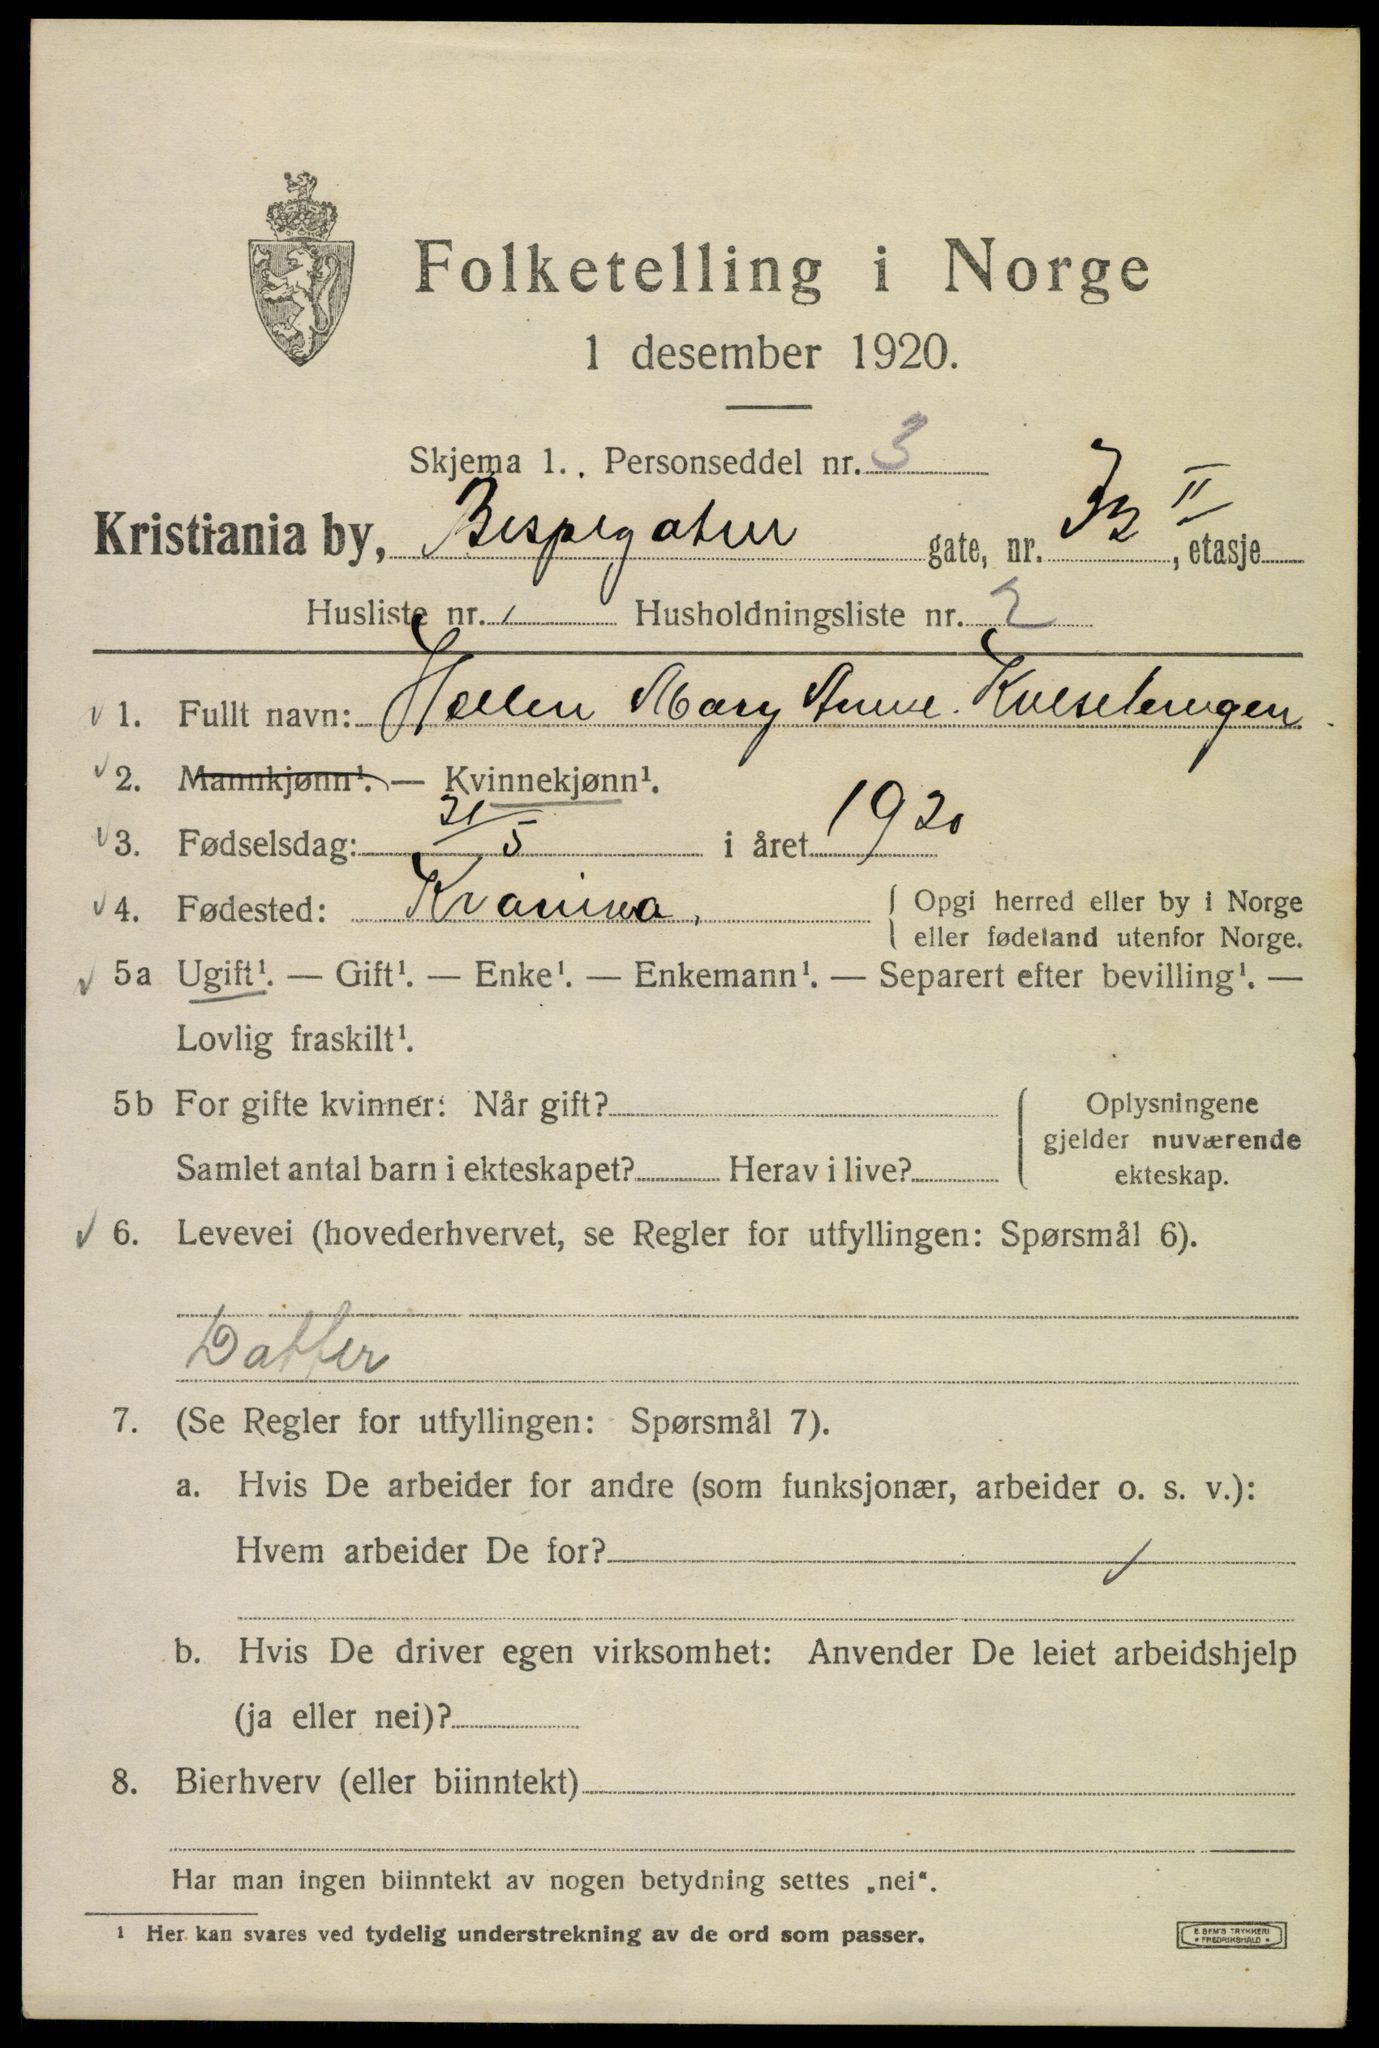 Folketelling i Norge
1 desember 1920.
Skjema 1. Personseddel nr. 3
Kristiania by, Bispegaten gate, nr. 3B, II etasje
Husliste nr. 1 Husholdningsliste nr. 2
1. Fullt navn: Hellen Mary Anne
2. Mannkjønn¹. — Kvinnekjønn¹.
3. Fødselsdag: 21/5 i året 1920
4. Fødested: { Opgi herred eller by i Norge
eller fødeland utenfor Norge.
5a Ugift¹. — Gift¹. — Enke¹. — Enkemann¹. — Separert efter bevilling¹. —
Lovlig fraskilt¹.
5b For gifte kvinner: Når gift? { Oplysningene
gjelder nuværende
Samlet antal barn i ekteskapet? Herav i live? ekteskap.
6. Levevei (hovederhvervet, se Regler for utfyllingen: Spørsmål 6).
Datter
7. (Se Regler for utfyllingen: Spørsmål 7).
a. Hvis De arbeider for andre (som funksjonær, arbeider o. s. v.):
Hvem arbeider De for?
b. Hvis De driver egen virksomhet: Anvender De leiet arbeidshjelp
(ja eller nei)?
8. Bierhverv (eller biinntekt)
Har man ingen biinntekt av nogen betydning settes „nei“.
¹ Her kan svares ved tydelig understrekning av de ord som passer.
E SEM'S TRYKKERI
• FREDRIKSHALD •